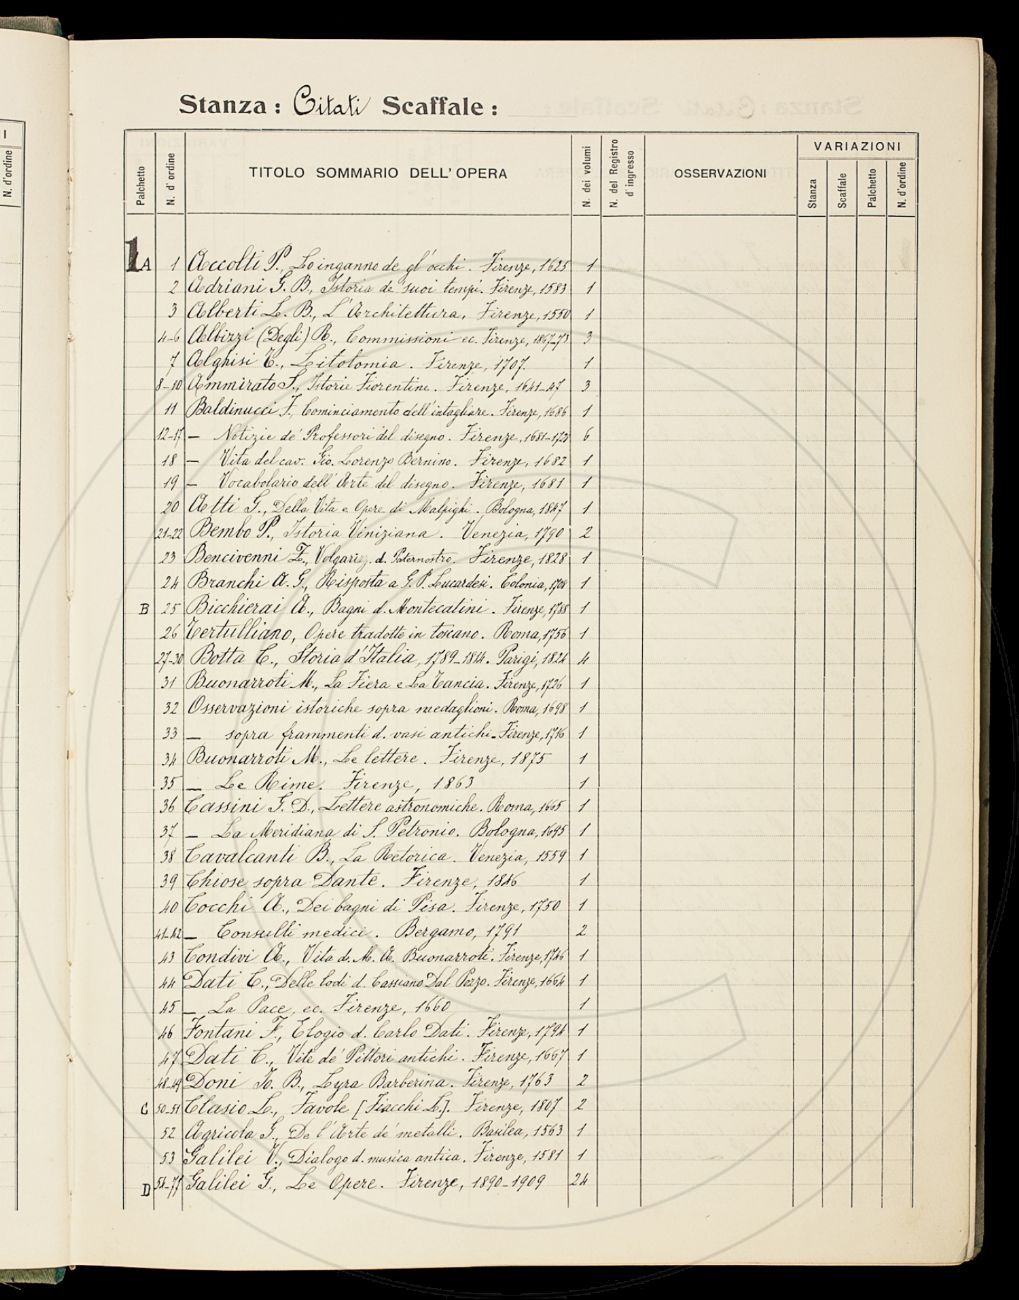 I
N. d'ordine
Stanza: Citati Scaffale:
Palchetto N. d'ordine TITOLO SOMMARIO DELL'OPERA N. dei volumi N. del Registro d'ingresso OSSERVAZIONI VARIAZIONI
Stanza Scaffale Palchetto N. d'ordine
1A 1 Accolti P., Lo inganno de gl'occhi. Firenze, 1625 1
2 Adriani G. B., Istoria de' suoi tempi. Firenze, 1583 1
3 Alberti L. B., L'Architettura. Firenze, 1550 1
4-6 Albizzi (Degli) R., Commissioni ec. Firenze, 1867-73 3
7 Alghisi T., Litotomia. Firenze, 1707. 1
8-10 Ammirato S., Istorie Fiorentine. Firenze, 1641-47 3
11 Baldinucci F., Cominciamento dell'intagliare. Firenze, 1686 1
12-17 — Notizie de' Professori del disegno. Firenze, 1681-1728 6
18 — Vita del cav. Gio. Lorenzo Bernino. Firenze, 1682 1
19 — Vocabolario dell'Arte del disegno. Firenze, 1681 1
20 Atti G., Della Vita e Opere di Malpighi. Bologna, 1847 1
21-22 Bembo P., Istoria Viniziana. Venezia, 1790 2
23 Bencivenni Z., Volgariz. d. Paternostro. Firenze, 1828 1
24 Branchi A. G., Risposta a G. P. Lucardesi. Colonia, 1708 1
B 25 Bicchierai A., Bagni d. Montecatini. Firenze, 1788 1
26 Tertulliano, Opere tradotte in toscano. Roma, 1756 1
27-30 Botta C., Storia d'Italia, 1789-1814. Parigi, 1824 4
31 Buonarroti M., La Fiera e La Tancia. Firenze, 1726 1
32 Osservazioni istoriche sopra medaglioni. Roma, 1698 1
33 — sopra frammenti d. vasi antichi. Firenze, 1716 1
34 Buonarroti M., Le lettere. Firenze, 1875 1
35 — Le Rime. Firenze, 1863 1
36 Cassini G. D., Lettere astronomiche. Roma, 1665 1
37 — La Meridiana di S. Petronio. Bologna, 1695 1
38 Cavalcanti B., La Retorica. Venezia, 1559 1
39 Chiose sopra Dante. Firenze, 1846 1
40 Cocchi A., Dei bagni di Pisa. Firenze, 1750 1
41-42 — Consulti medici. Bergamo, 1791 2
43 Condivi A., Vita d. M. A. Buonarroti. Firenze, 1746 1
44 Dati C., Delle lodi d. Cassiano Dal Pozzo. Firenze, 1664 1
45 — La Pace, ec. Firenze, 1660 1
46 Fontani F., Elogio d. Carlo Dati. Firenze, 1794 1
47 Dati C., Vite de' Pittori antichi. Firenze, 1667 1
48-49 Doni G. B., Lyra Barberina. Firenze, 1763 2
C 50-51 Clasio L., Favole [Fiacchi L.]. Firenze, 1807 2
52 Agricola G., De l'Arte de' metalli. Basilea, 1563 1
53 Galilei V., Dialogo d. musica antica. Firenze, 1581 1
D 54-77 Galilei G., Le Opere. Firenze, 1890-1909 24